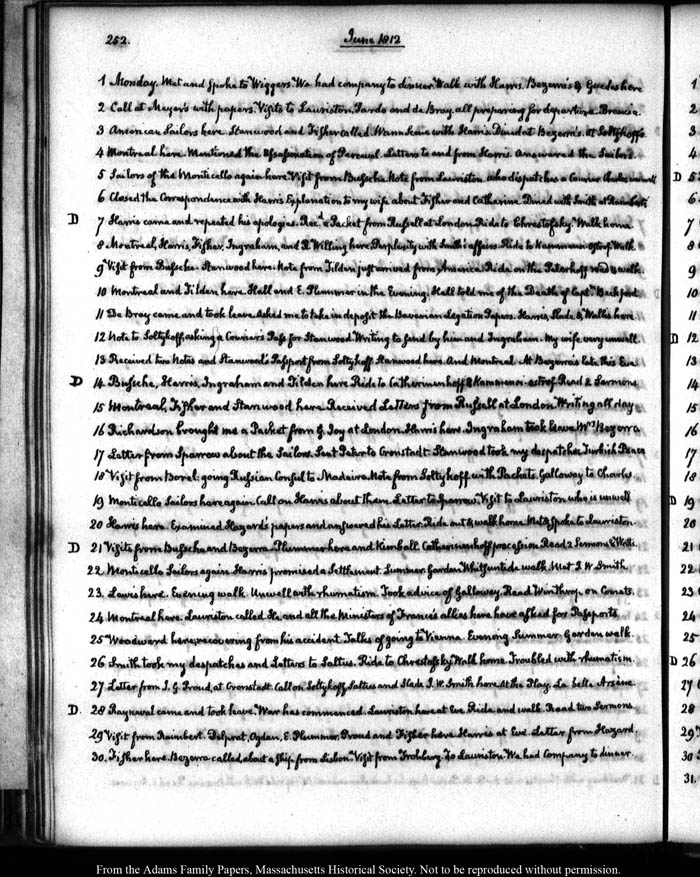 252.
June 1812
1 Monday. Met and spoke to Wiggers. We had company to dinner. Walk with Harris. Bezerra's & Guedes here
2 Call at Meyer's with papers. Visits to Lauriston, Jardo and de Bray, all preparing for departure.
3 American Sailors here. Stanwood and Fisher called. with Harris. Dined at Bezerra's. at Soltykoff's
4 Montreal here. Mentioned the Assassination of Perceval. Letters to and from Harris. Answered the Sailors
5 Sailors of the Monticello again here. Visit from Bussche. Note from Lauriston who dispatches a Courier. Charles unwell
D
6 Closed the Correspondence with Harris. Explanation to my wife about Fisher and Catherine. Dined with Smith at Raimbert's
D 7 Harris came and repeated his apologies. Rec.d a Packet from Russell at London. Ride to Chrestofsky. Walk home
8 Montreal, Harris, Fisher, Ingraham, and R. Willing here. Perplexity with Smith's affairs. Ride to Kammenoi-ostrof. Walk
9 Visit from Bussche. Stanwood here. Note from Tilden just arrived from America. Ride on the Peterhoff road & walk
10 Montreal and Tilden here. Hall and E. Plummer in the Evening. Hall told me of the Death of Capt. Beckford
11 De Bray came and took leave. Asked me to take in deposit the Bavarian Legation Papers. Harris, Slade & Wallis here
12 Note to Soltykoff, asking a Courier's Pass for Stanwood. Writing to send by him and Ingraham. My wife very unwell
D
13 Received two Notes and Stanwood's Passport from Soltykoff. Stanwood here. And Montreal. At Bezerra's late this Eve
D 14. Bussche, Harris, Ingraham and Tilden here. Ride to Catherinenhoff & Kammenoi-ostrof. Read 2 Sermons
15 Montreal, Fisher and Stanwood here. Received Letters from Russell at London. Writing all day
16 Richardson brought me a Packet from G. Joy at London. Harris here. Ingraham took leave. Mrs Bezerra
17 Letter from Sparrow about the Sailors. Sent Peter to Cronstadt. Stanwood took my despatches. Turkish Peace
18 Visit from Borel: going Russian Consul to Madeira. Note from Soltykoff with Packets. Galloway to Charles
19 Monticello Sailors here again. Call on Harris about them. Letter to Sparrow. Visit to Lauriston who is unwell
D
20 Harris here. Examined Hazard's papers and answered his Letter. Ride out & walk home. Met & spoke to Lauriston.
D 21 Visits from Bussche and Bezerra. Plummer here and Kimball. Catherinenhoff procession. Read 2 Sermons
22 Monticello Sailors again. Harris promised a Settlement. Summer Garden Whitsuntide walk. Met J. W. Smith
23. Lewis here. Evening walk. Unwell with rhumatism. Took advice of Galloway. Read Winthrop on Comets.
24 Montreal here. Lauriston called. He and all the Ministers of France's allies here have asked for Passports
25 Woodward here, recovering from his accident. Talks of going to Vienna. Evening Summer Garden walk
26 Smith took my despatches and Letters to Saltus. Ride to Chrestofsky. Walk home. Troubled with rhumatism
D
27 Letter from J. G. Proud, at Cronstadt. Call on Soltykoff, Saltus and Slade. J. W. Smith here. At the Play. La belle Arsène
D. 28 Rayneval came and took leave. War has commenced. Lauriston here at Eve. Ride and walk. Read two Sermons
29 Visit from Raimbert. Delprat, Ogden, E. Plummer, Proud and Fisher here. Harris at Eve. Letter from Hazard.
30. Fisher here. Bezerra called, about a Ship from Lisbon. Visit from Frohberg. To Lauriston. We had Company to dinner
1
2
3
4
5
6
7
8
9
10
11
12
13
14
15
16
17
18
19
20
21
22
23
24
25
26
27
28
29
30
31.
From the Adams Family Papers, Massachusetts Historical Society. Not to be reproduced without permission.